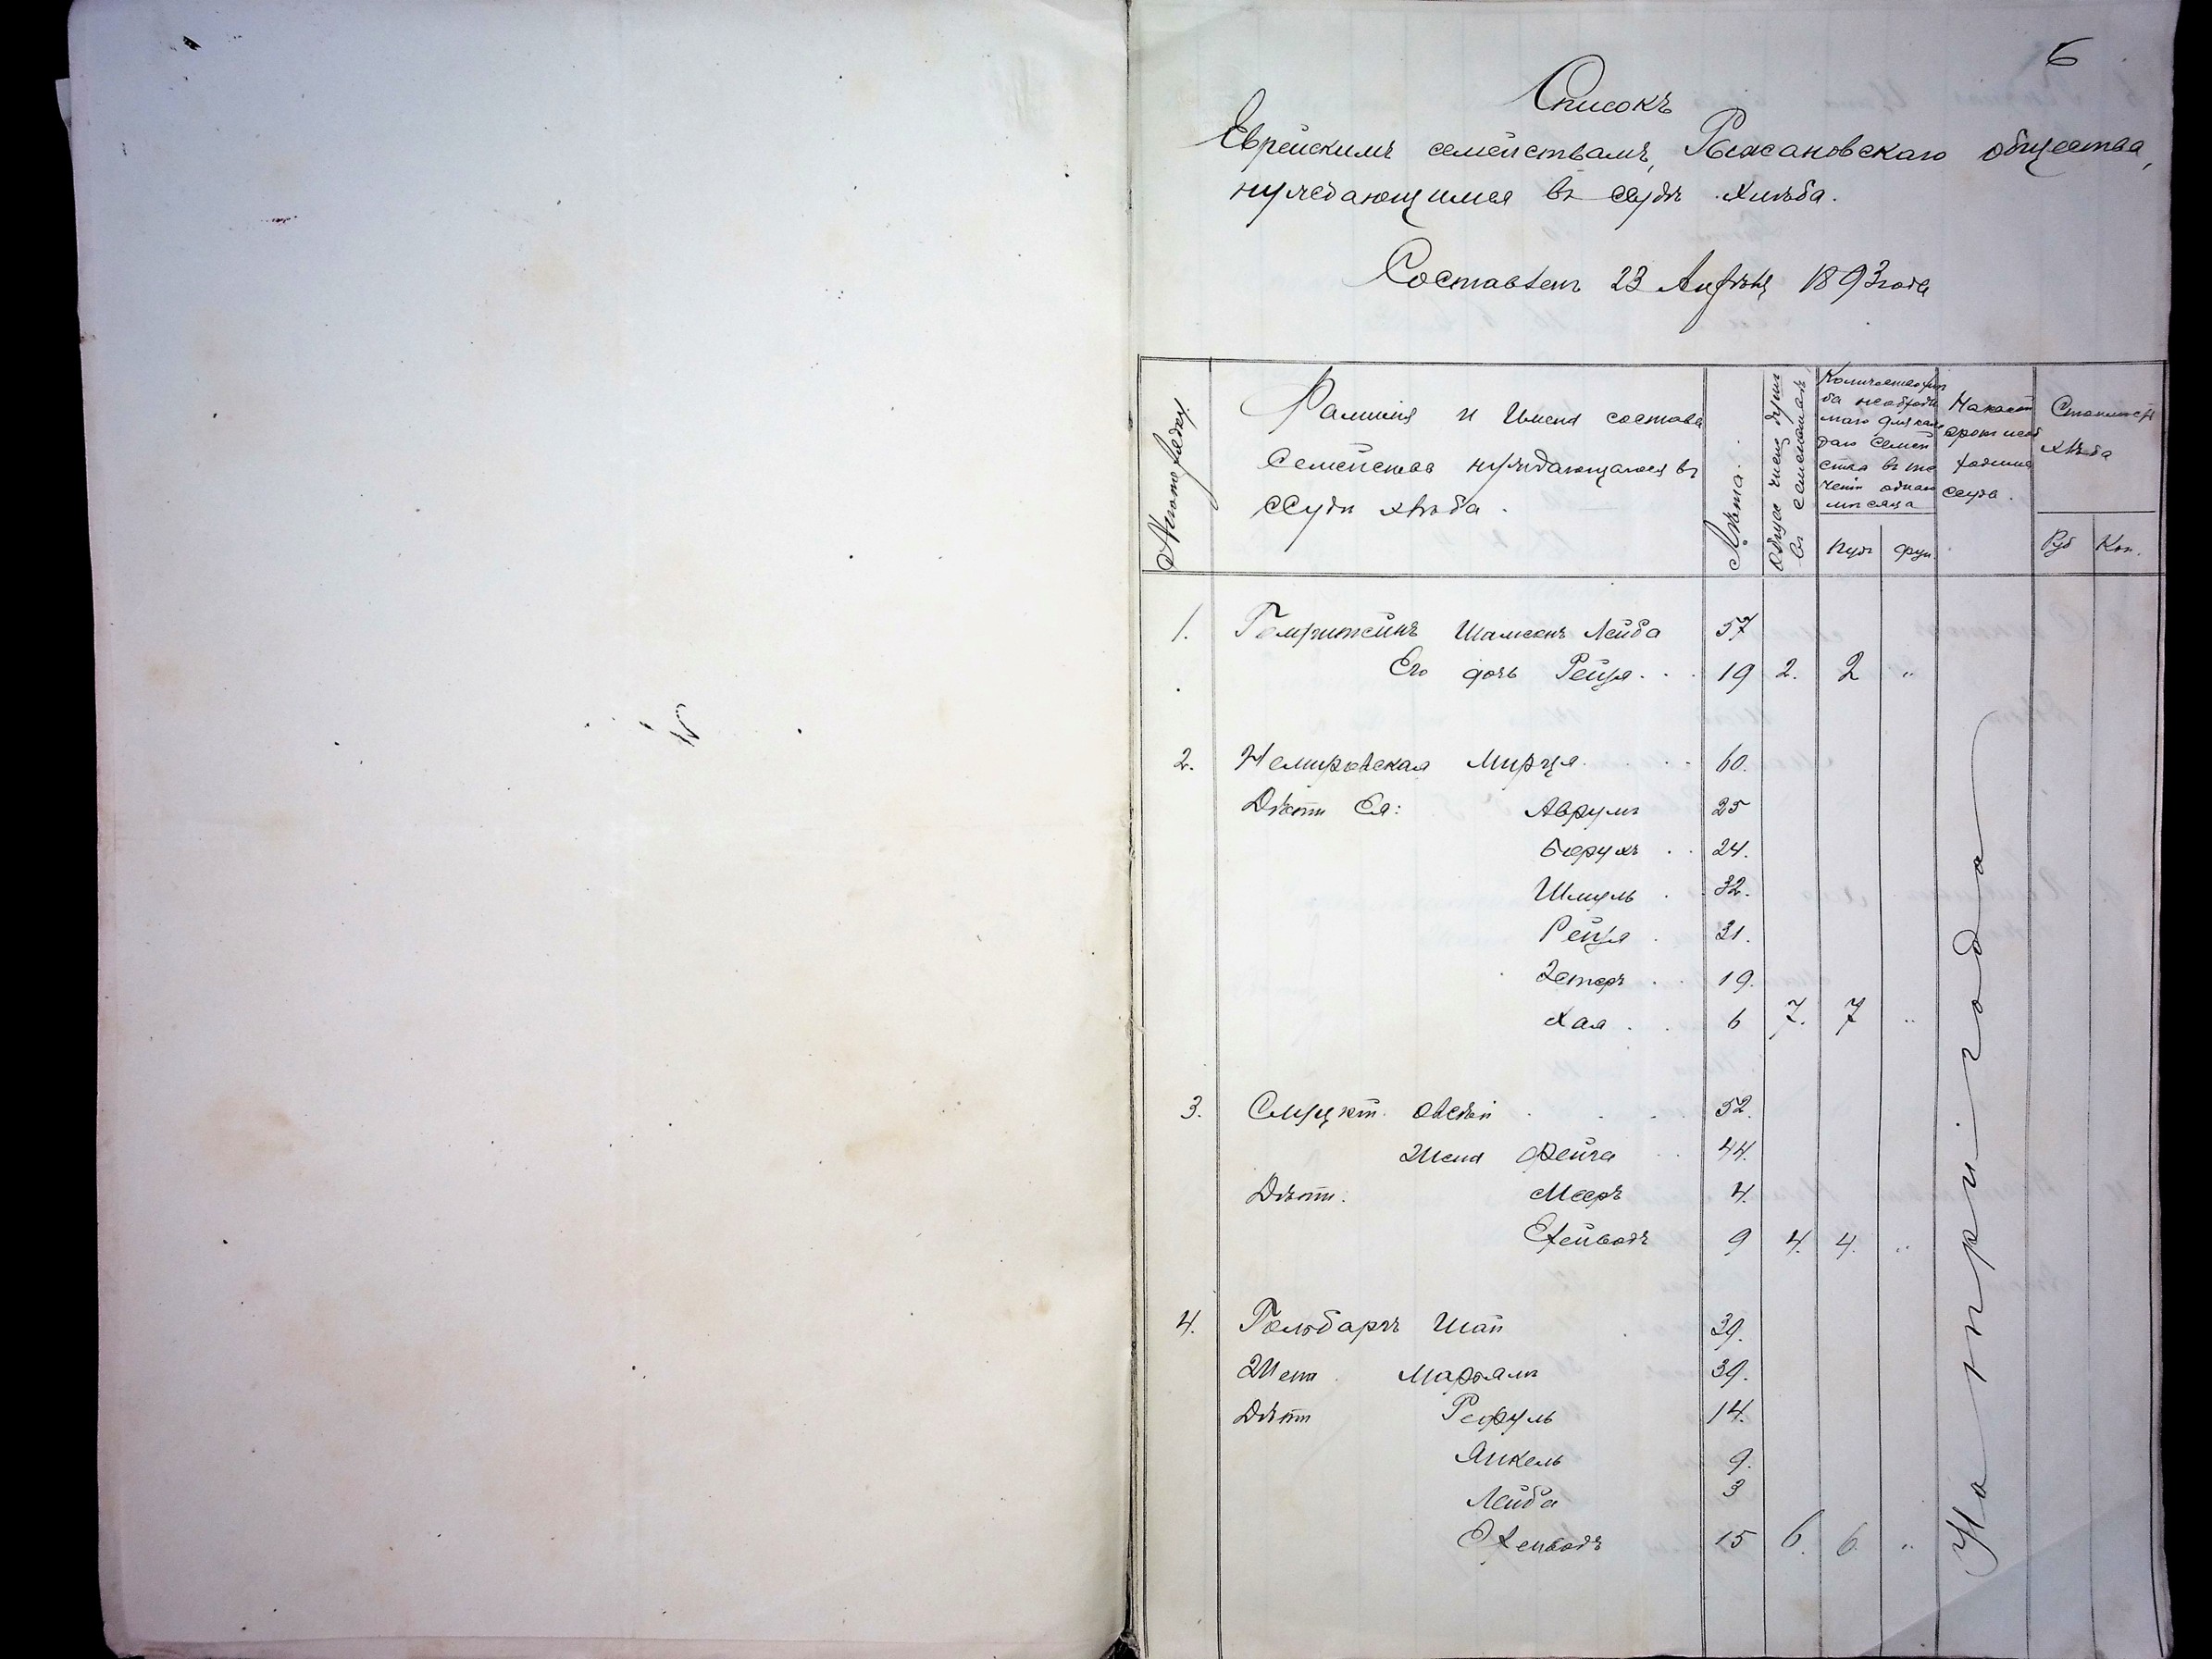 6
Списокъ
Еврейскимъ семействамъ, Рыжановскаго общества,
нуждающимся въ ссудѣ хлѣба.
Составленъ 23 Апрѣля 1893 года
№ по порядку
Фамилія и Имена состава
семейства нуждающагося въ
ссудѣ хлѣба.
Лѣта.
Общее число душъ
въ семействахъ
Количество хлѣ
ба необходи
маго для каж
даго семей
ства въ те
ченіи одного
мѣсяца
Пуд
Фун.
На какой
срокъ необ
ходима
ссуда.
Стоимость
хлѣба
Руб Коп.
1. Шамсонъ Лейба 57
Его дочь Рейзя 19 2. 2 "
2. Немировская Мирця 60.
Дѣти Ея: Аврумъ 25
Борухъ 24.
Шмуль 32.
Рейзя 21.
Эстеръ 19.
Хая 6 7. 7 "
3. Овсѣй 52.
Жена Фейга 44.
Дѣти. Мееръ 4.
Хейводъ 9 4. 4. "
4. Гольдбаргъ Шай 39.
Жена Марьямъ 39.
Дѣти Рефуль 14.
Янкель 9.
Лейба 3
Хейводъ 15 6. 6. "
На три года